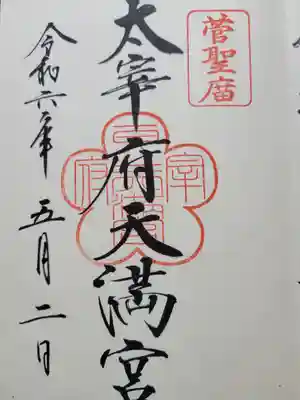 菅聖廟
太宰府天満宮
令和六年五月二日